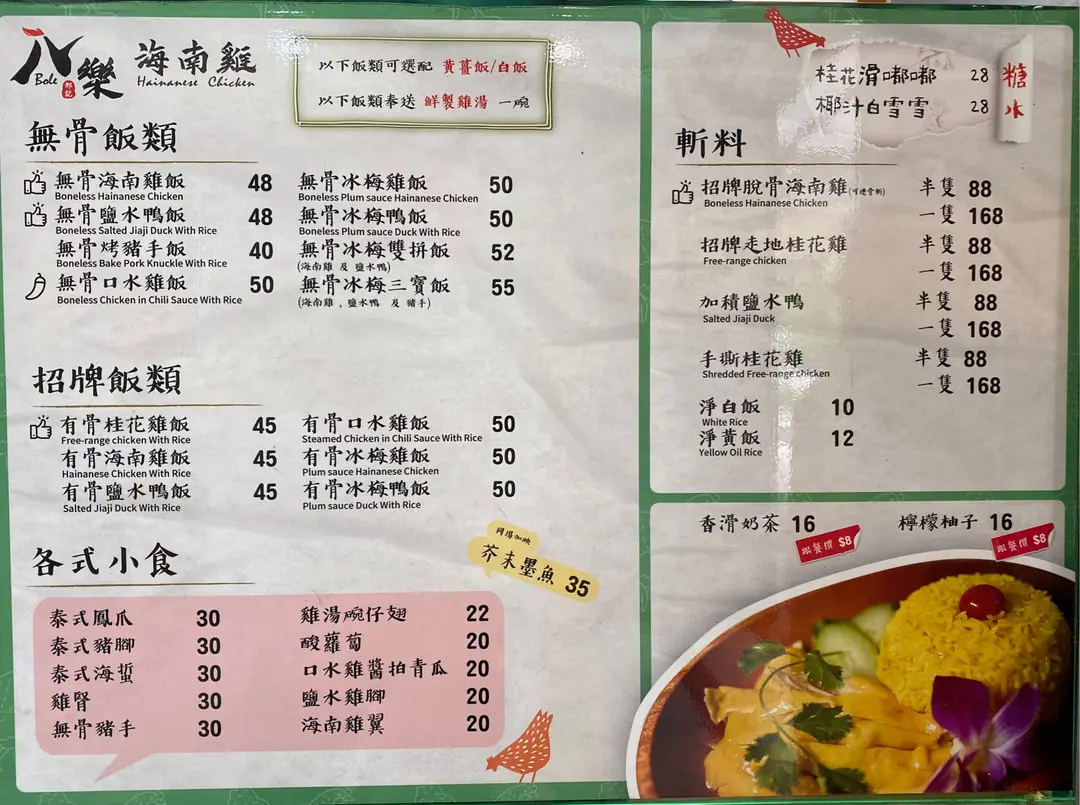 八樂
Bole
海南雞
Hainanese Chicken
以下飯類可選配 黄薑飯/白飯
以下飯類奉送 鮮製雞湯 一碗
無骨飯類
無骨海南雞飯 48
Boneless Hainanese Chicken
無骨鹽水鴨飯 48
Boneless Salted Jiaji Duck With Rice
無骨烤豬手飯 40
Boneless Bake Pork Knuckle With Rice
無骨口水雞飯 50
Boneless Chicken in Chili Sauce With Rice
無骨冰梅雞飯 50
Boneless Plum sauce Hainanese Chicken
無骨冰梅鴨飯 50
Boneless Plum sauce Duck With Rice
無骨冰梅雙拼飯 52
(海南雞 及 鹽水鴨)
無骨冰梅三寶飯 55
(海南雞 , 鹽水鴨 及 豬手)
招牌飯類
有骨桂花雞飯 45
Free-range chicken With Rice
有骨海南雞飯 45
Hainanese Chicken With Rice
有骨鹽水鴨飯 45
Salted Jiaji Duck With Rice
有骨口水雞飯 50
Steamed Chicken in Chili Sauce With Rice
有骨冰梅雞飯 50
Plum sauce Hainanese Chicken
有骨冰梅鴨飯 50
Plum sauce Duck With Rice
各式小食
同場加映
芥末墨魚 35
泰式鳳爪 30
泰式豬腳 30
泰式海蜇 30
雞腎 30
無骨豬手 30
雞湯碗仔翅 22
酸蘿蔔 20
口水雞醬拍青瓜 20
鹽水雞腳 20
海南雞翼 20
糖水
桂花滑嘟嘟 28
椰汁白雪雪 28
斬料
招牌脫骨海南雞(可連骨斬) 半隻 88
Boneless Hainanese Chicken
一隻 168
招牌走地桂花雞 半隻 88
Free-range chicken
一隻 168
加積鹽水鴨 半隻 88
Salted Jiaji Duck
一隻 168
手撕桂花雞 半隻 88
Shredded Free-range chicken
一隻 168
淨白飯 10
White Rice
淨黃飯 12
Yellow Oil Rice
香滑奶茶 16
跟餐價 $8
檸檬柚子 16
跟餐價 $8